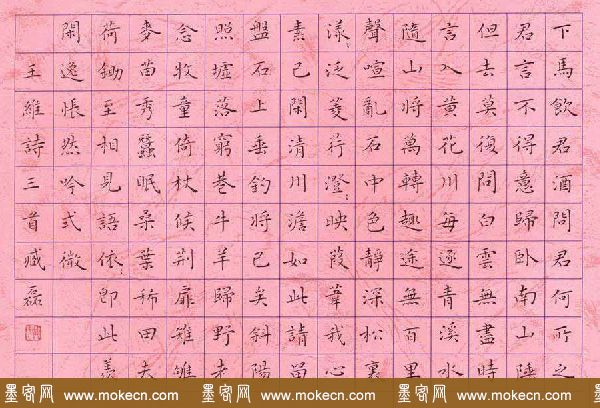 下馬飲君酒問君何所之
君言不得意歸臥南山陲
但去莫復問白雲無盡時
言入黃花川每逐青溪水
隨山將萬轉趣途無百里
聲喧亂石中色靜深松裏
漾々泛菱荇澄々映葭葦我心
素已閑清川澹如此請留
盤石上垂釣將已矣斜陽
照墟落窮巷牛羊歸野老
念牧童倚杖候荊扉雉雊
麥苗秀蠶眠桑葉稀田夫
荷鋤至相見語依々即此羨
閑逸悵然吟式微
王維詩三首臧磊
墨客网 www.mokecn.com 墨客网 www.mokecn.com 墨客网 www.mokecn.com